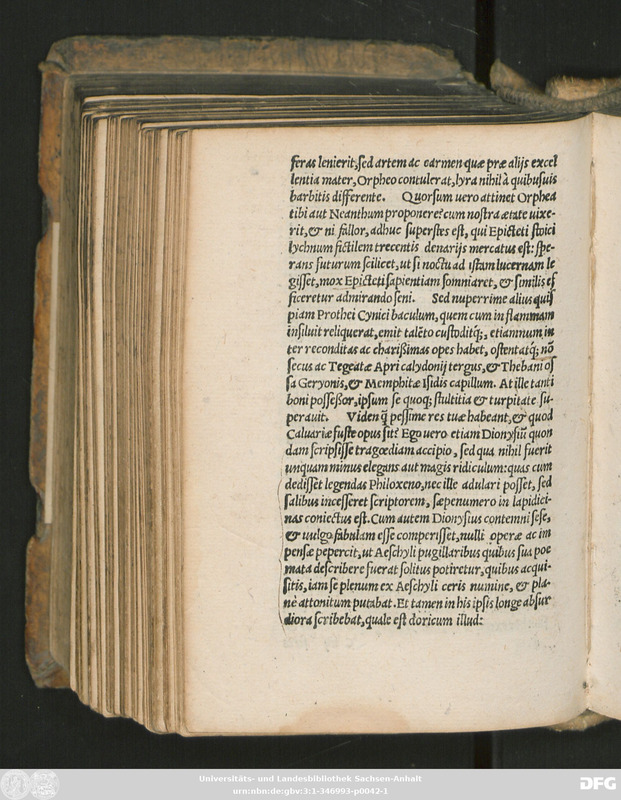 feras lenierit, sed artem ac carmen quæ præ alijs excel
lentia mater, Orpheo contulerat, lyra nihil à quibusuis
barbitis differente. Quorsum uero attinet Orphea
tibi aut Neanthum proponere? cum nostra ætate uixe-
rit, & ni fallor, adhuc superstes est, qui Epicteti stoici
lychnum fictilem trecentis denarijs mercatus est: spe-
rans futurum scilicet, ut si noctu ad istam lucernam le
gisset, mox Epicteti sapientiam somniaret, & similis ef
ficeretur admirando seni. Sed nuperrime alius quis
piam Prothei Cynici baculum, quem cum in flammam
insiluit reliquerat, emit talẽto custoditq́;, etiamnum in
ter reconditas ac charißimas opes habet, ostentatq́; nõ
secus ac Tegeatæ Apri calydonij tergus, & Thebani os
sa Geryonis, & Memphitæ Isidis capillum. At ille tanti
boni posseßor, ipsum se quoq; stultitia & turpitate su-
perauit. Viden q̃ pessime res tuæ habeant, & quod
Caluariæ fuste opus sit? Ego uero etiam Dionysiũ quon
dam scripsisse tragœdiam accipio, sed qua nihil fuerit
unquam minus elegans aut magis ridiculum: quas cum
dedisset legendas Philoxeno, nec ille adulari posset, sed
salibus incesseret scriptorem, sæpenumero in lapidici-
nas coniectus est. Cum autem Dionysius contemni sese,
& uulgo fabulam esse comperisset, nulli operæ ac im
pensæ pepercit, ut Aeschyli pugillaribus quibus sua poe
mata describere fuerat solitus potiretur, quibus acqui-
sitis, iam se plenum ex Aeschyli ceris numine, & pla-
nè attonitum putabat. Et tamen in his ipsis longe absur
diora scribebat, quale est doricum illud:
Universitäts- und Landesbibliothek Sachsen-Anhalt
urn:nbn:de:gbv:3:1-346993-p0042-1
DFG